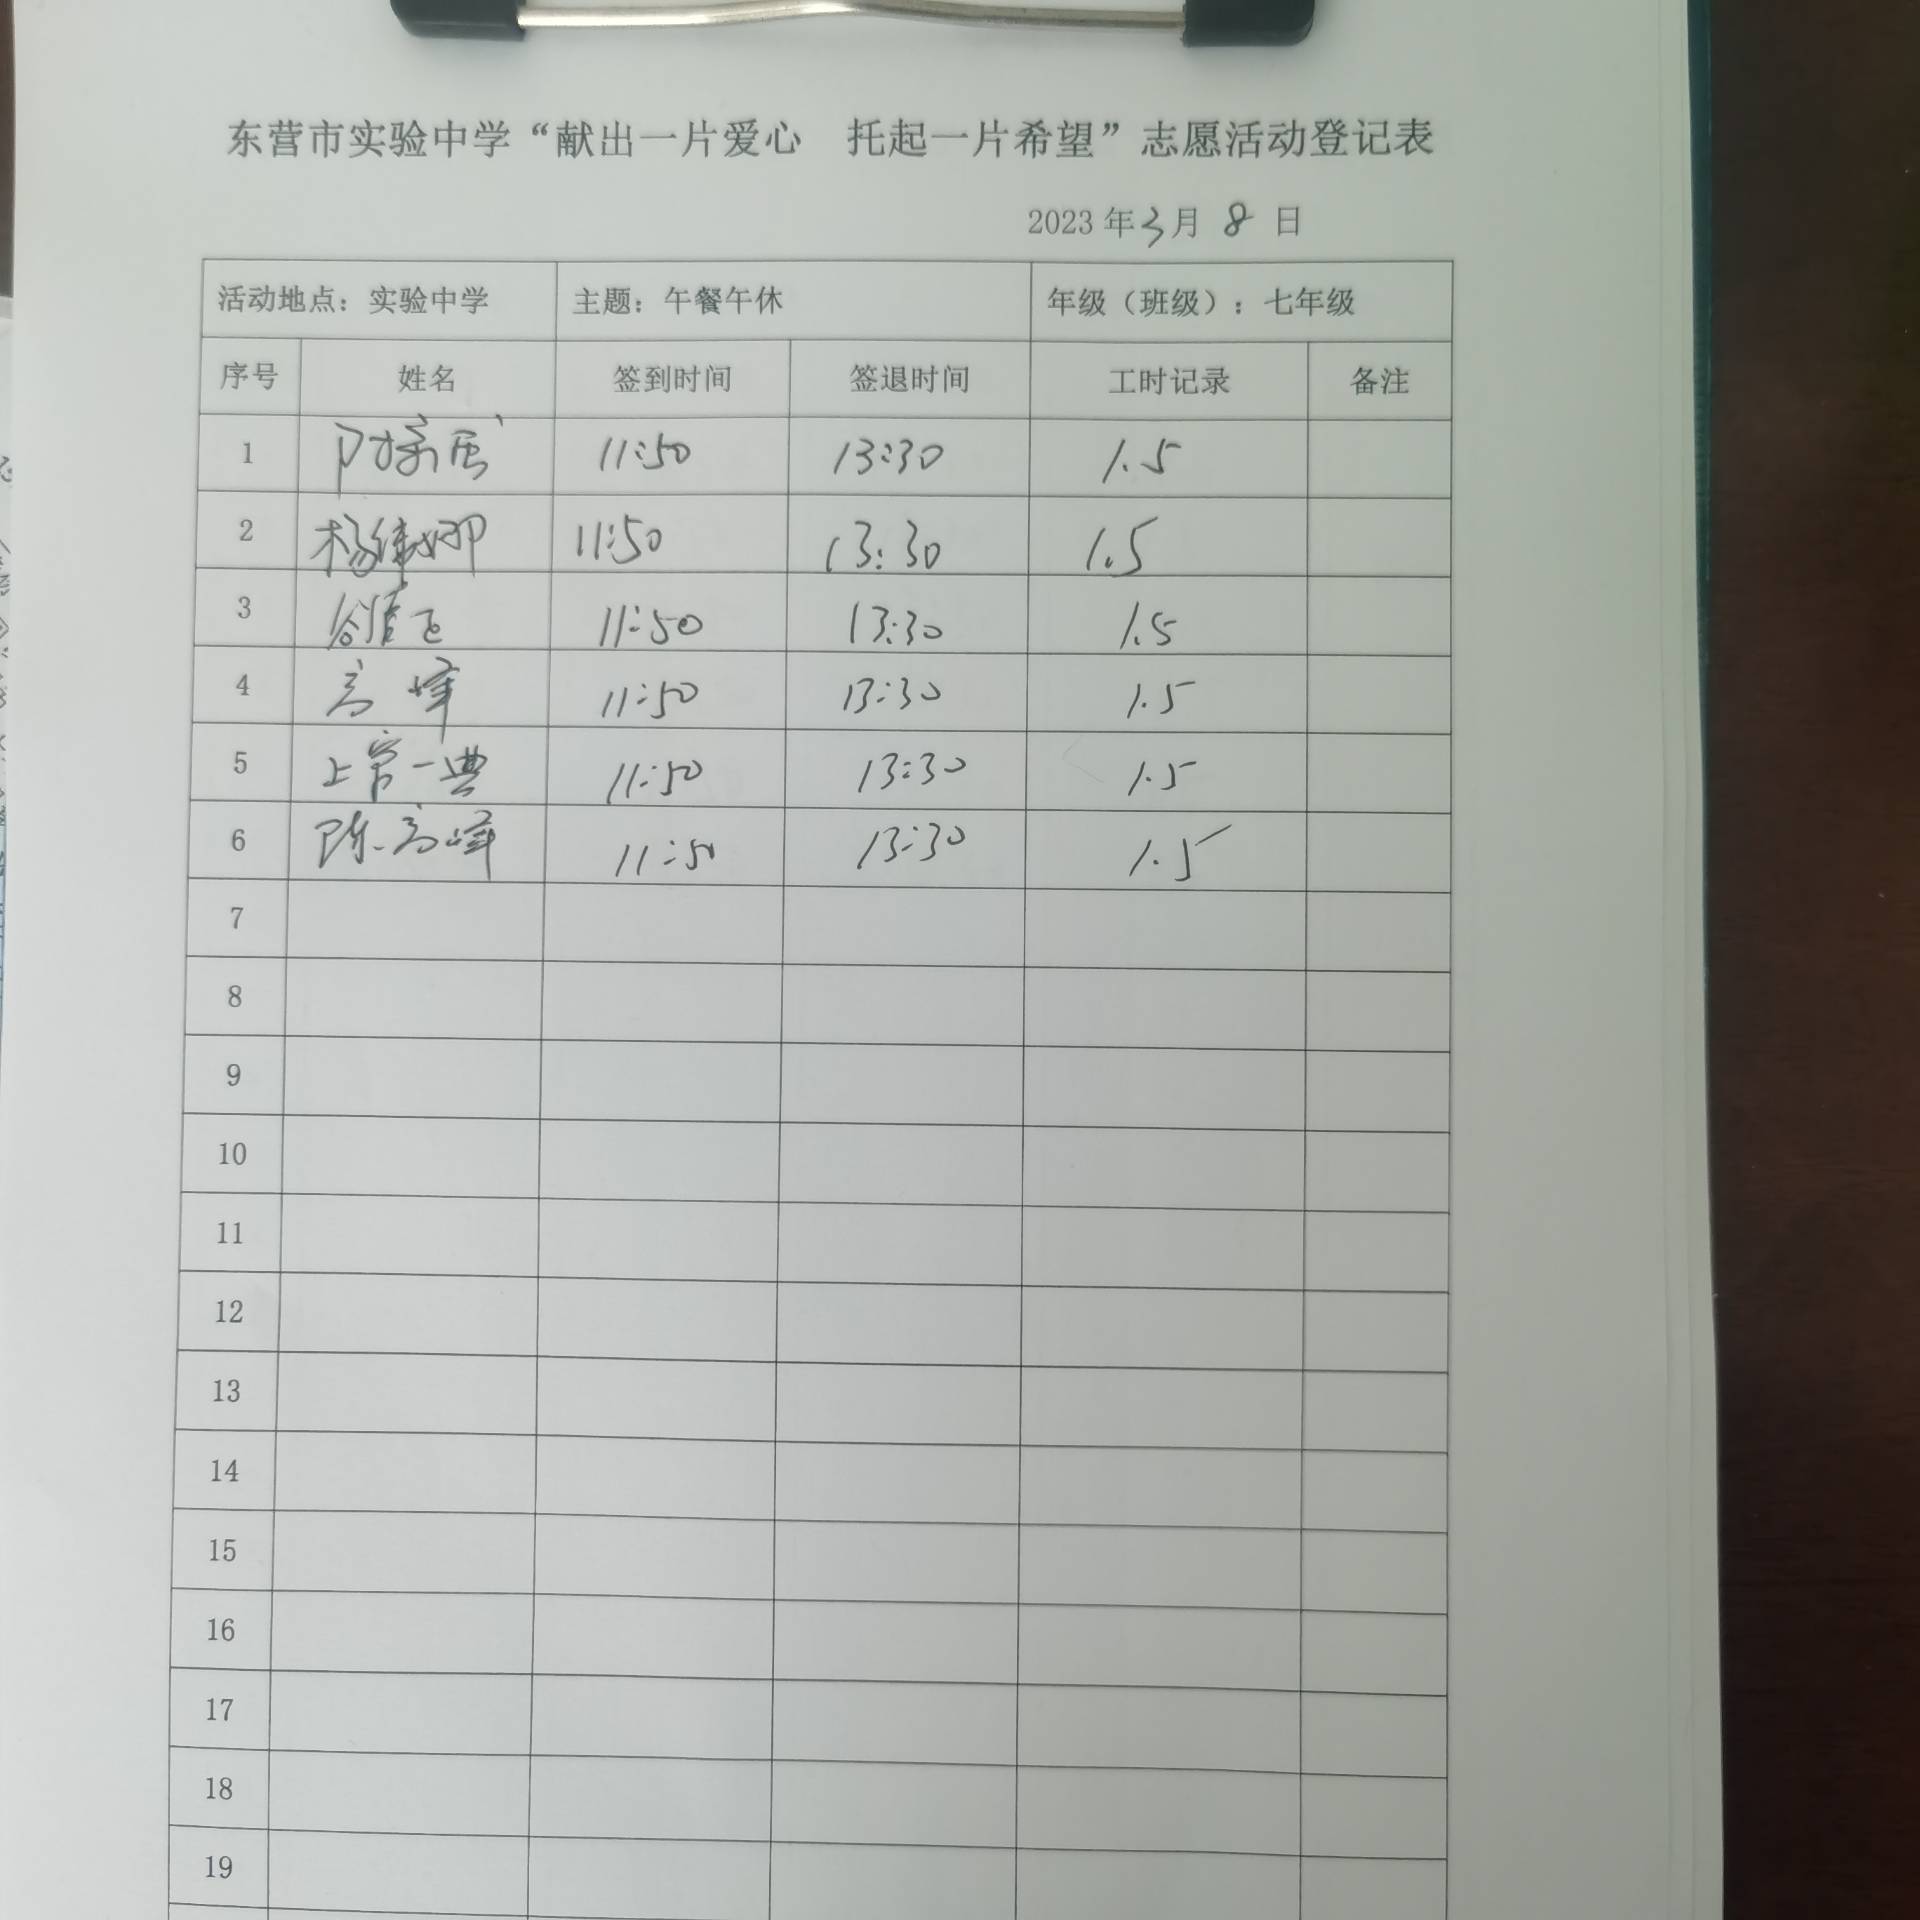 东营市实验中学“献出一片爱心 托起一片希望”志愿活动登记表
2023年3月8日
活动地点：实验中学 主题：午餐午休 年级（班级）：七年级
序号 姓名 签到时间 签退时间 工时记录 备注
1 11:50 13:30 1.5
2 杨 娜 11:50 13:30 1.5
3 11:50 13:30 1.5
4 高峰 11:50 13:30 1.5
5 上官一典 11:50 13:30 1.5
6 陈高峰 11:50 13:30 1.5
7
8
9
10
11
12
13
14
15
16
17
18
19